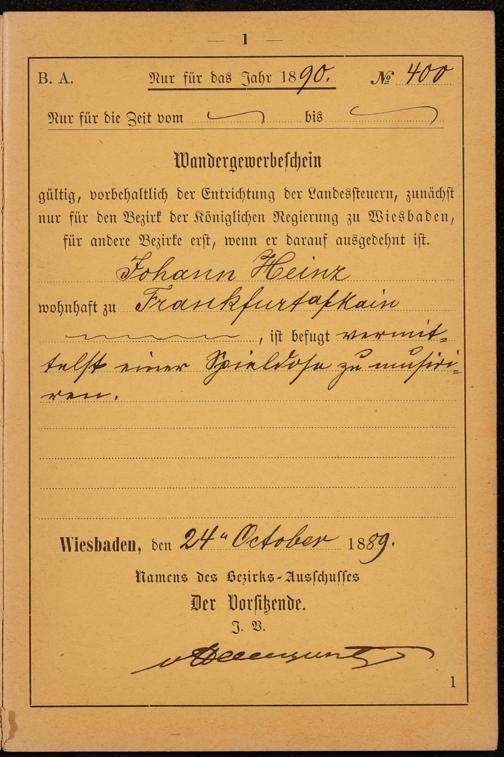 — 1 —
B. A. Nur für das Jahr 1890. № 400
Nur für die Zeit vom bis
Wandergewerbeschein
gültig, vorbehaltlich der Entrichtung der Landessteuern, zunächst
nur für den Bezirk der Königlichen Regierung zu Wiesbaden,
für andere Bezirke erst, wenn er darauf ausgedehnt ist.
Johann Heinz
wohnhaft zu Frankfurt a/Main
, ist befugt vermit-
telst einer Spieldose zu musizi-
ren.
Wiesbaden, den 24" October 1889.
Namens des Bezirks-Ausschusses
Der Vorsitzende.
J. V.
1